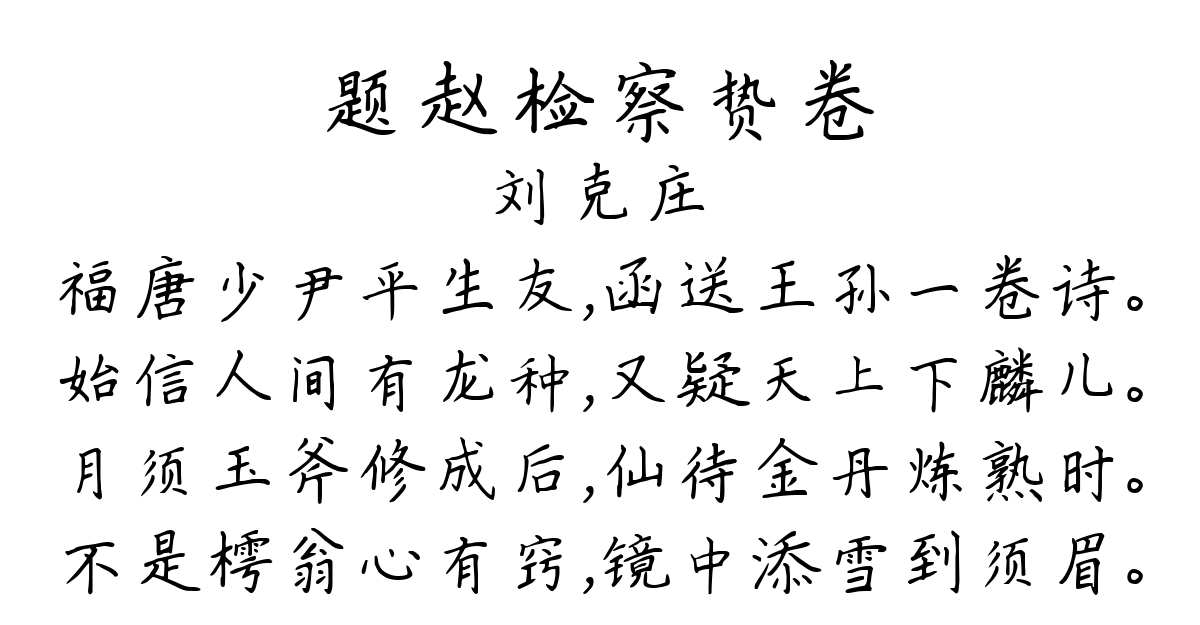 题赵检察贽卷
刘克庄
福唐少尹平生友,函送王孙一卷诗。
始信人间有龙种,又疑天上下麟儿。
月须玉斧修成后,仙待金丹炼熟时。
不是樗翁心有窍,镜中添雪到须眉。